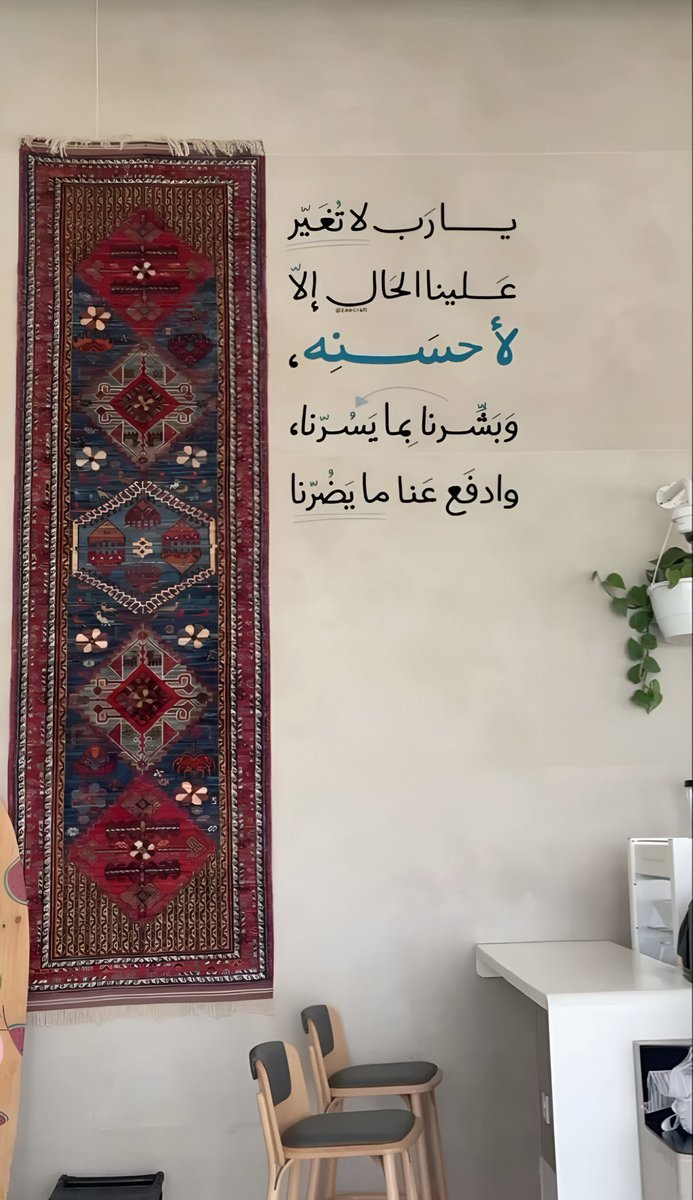 يــــارَب لا تُغَيّر
عَــلينا الحَال إلاّ
@Zaacraft
لأحسَــــنِه،
وَبَشِّــرنا بِما يَسُرّنا،
وادفَع عَنا ما يَضُرّنا